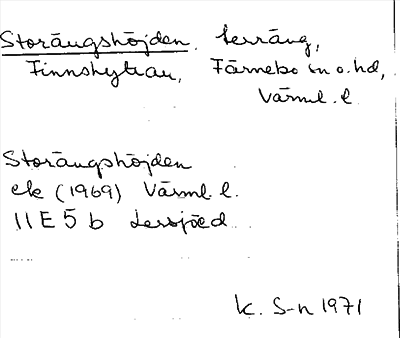 Storängshöjden. terräng,
Finnshyttan, Färnebo sn o. hd,
Värml. l.
Storängshöjden
ek (1969) Värml. l.
11E 5 b Lersjöed
K. S-n 1971